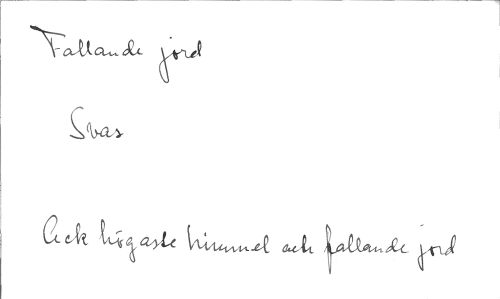 Fallande jord
Svas
Ack högaste himmel och fallande jord